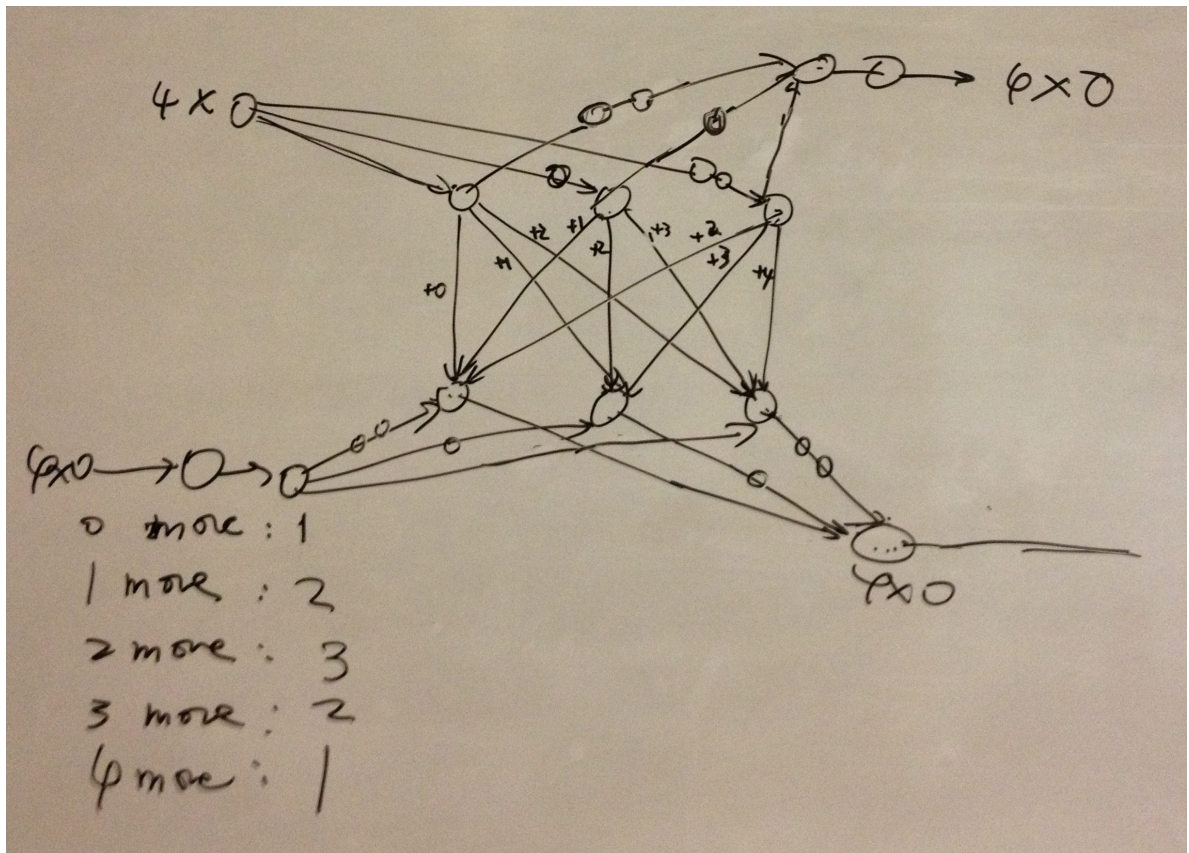 4 X
4 X 0
+2 +1 +2 +3 +2
+1 +3 +4
+0
4X0
4X0
0 more : 1
1 more : 2
2 more : 3
3 more : 2
4 more : 1